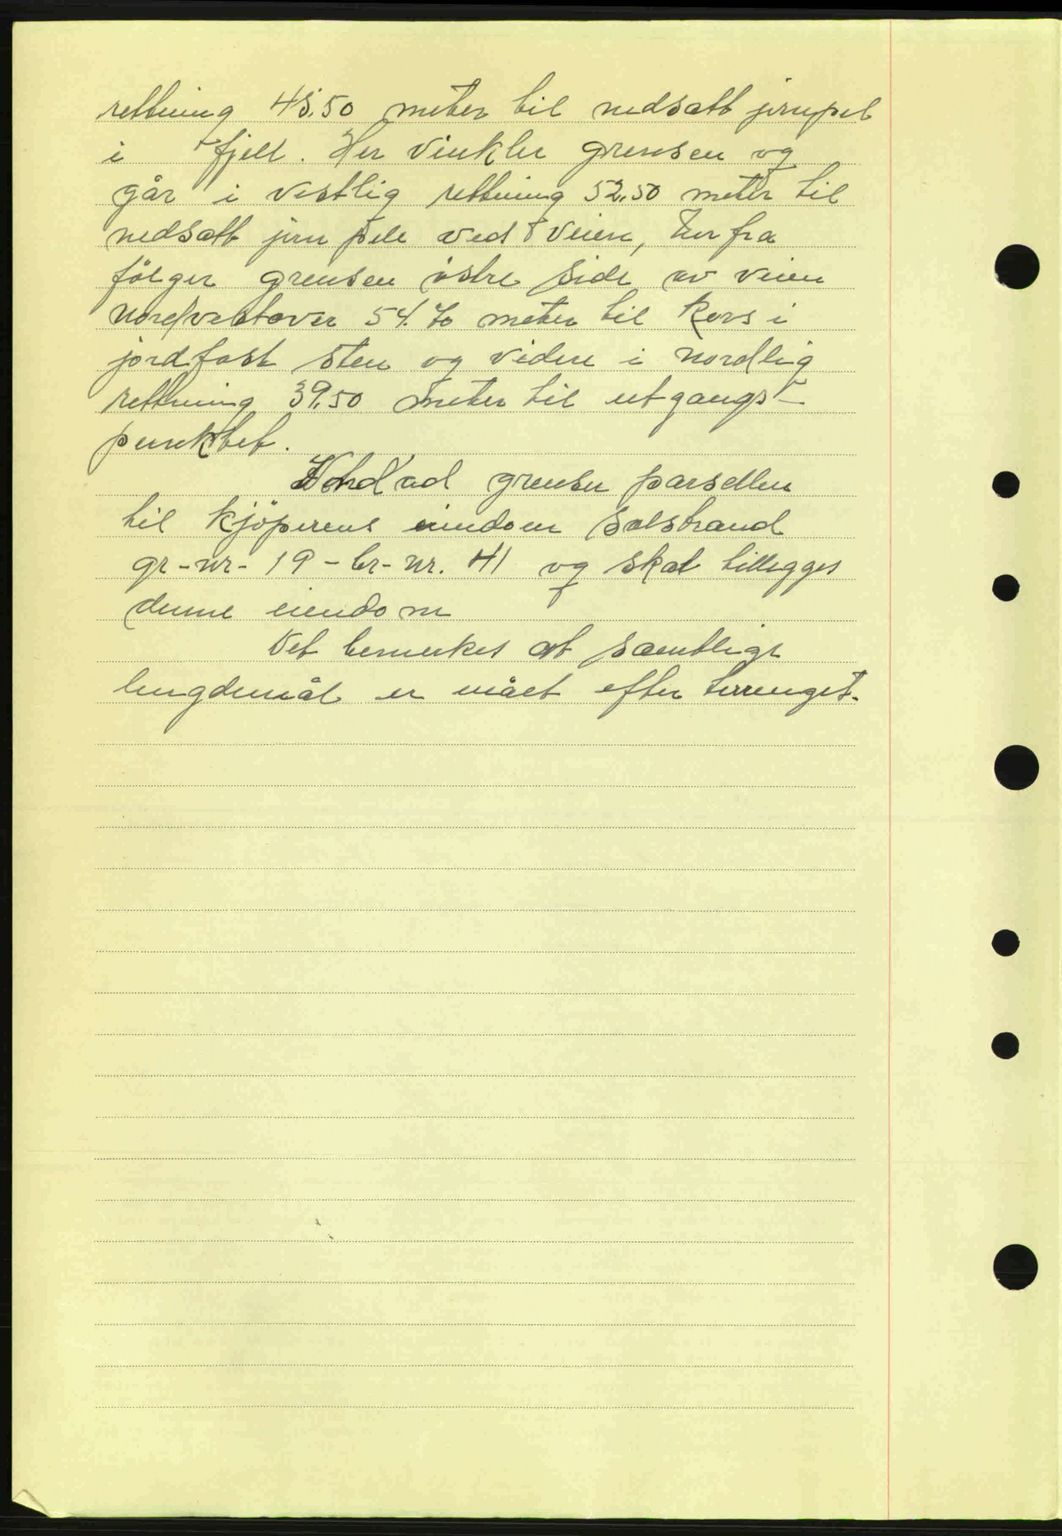 rettning 45.50 meter til nedsatt jernpel
i fjell. Her vinkler grensen og
går i vestlig rettning 52.50 meter til
nedsatt jern pele ved veien, herfra
følger grensen östre side av veien
nordvestover 54.70 meter til kors i
jordfast sten og videre i nordlig
rettning 39.50 meter til utgangs-
punktet.
Nordvad grenser parsellen
til kjöperens eiendom Solstrand
gr-nr- 19 - br-nr. 41 og skal tillegges
denne eiendom
Det bemerkes at samtlige
lengdemål er målt efter terrenget.